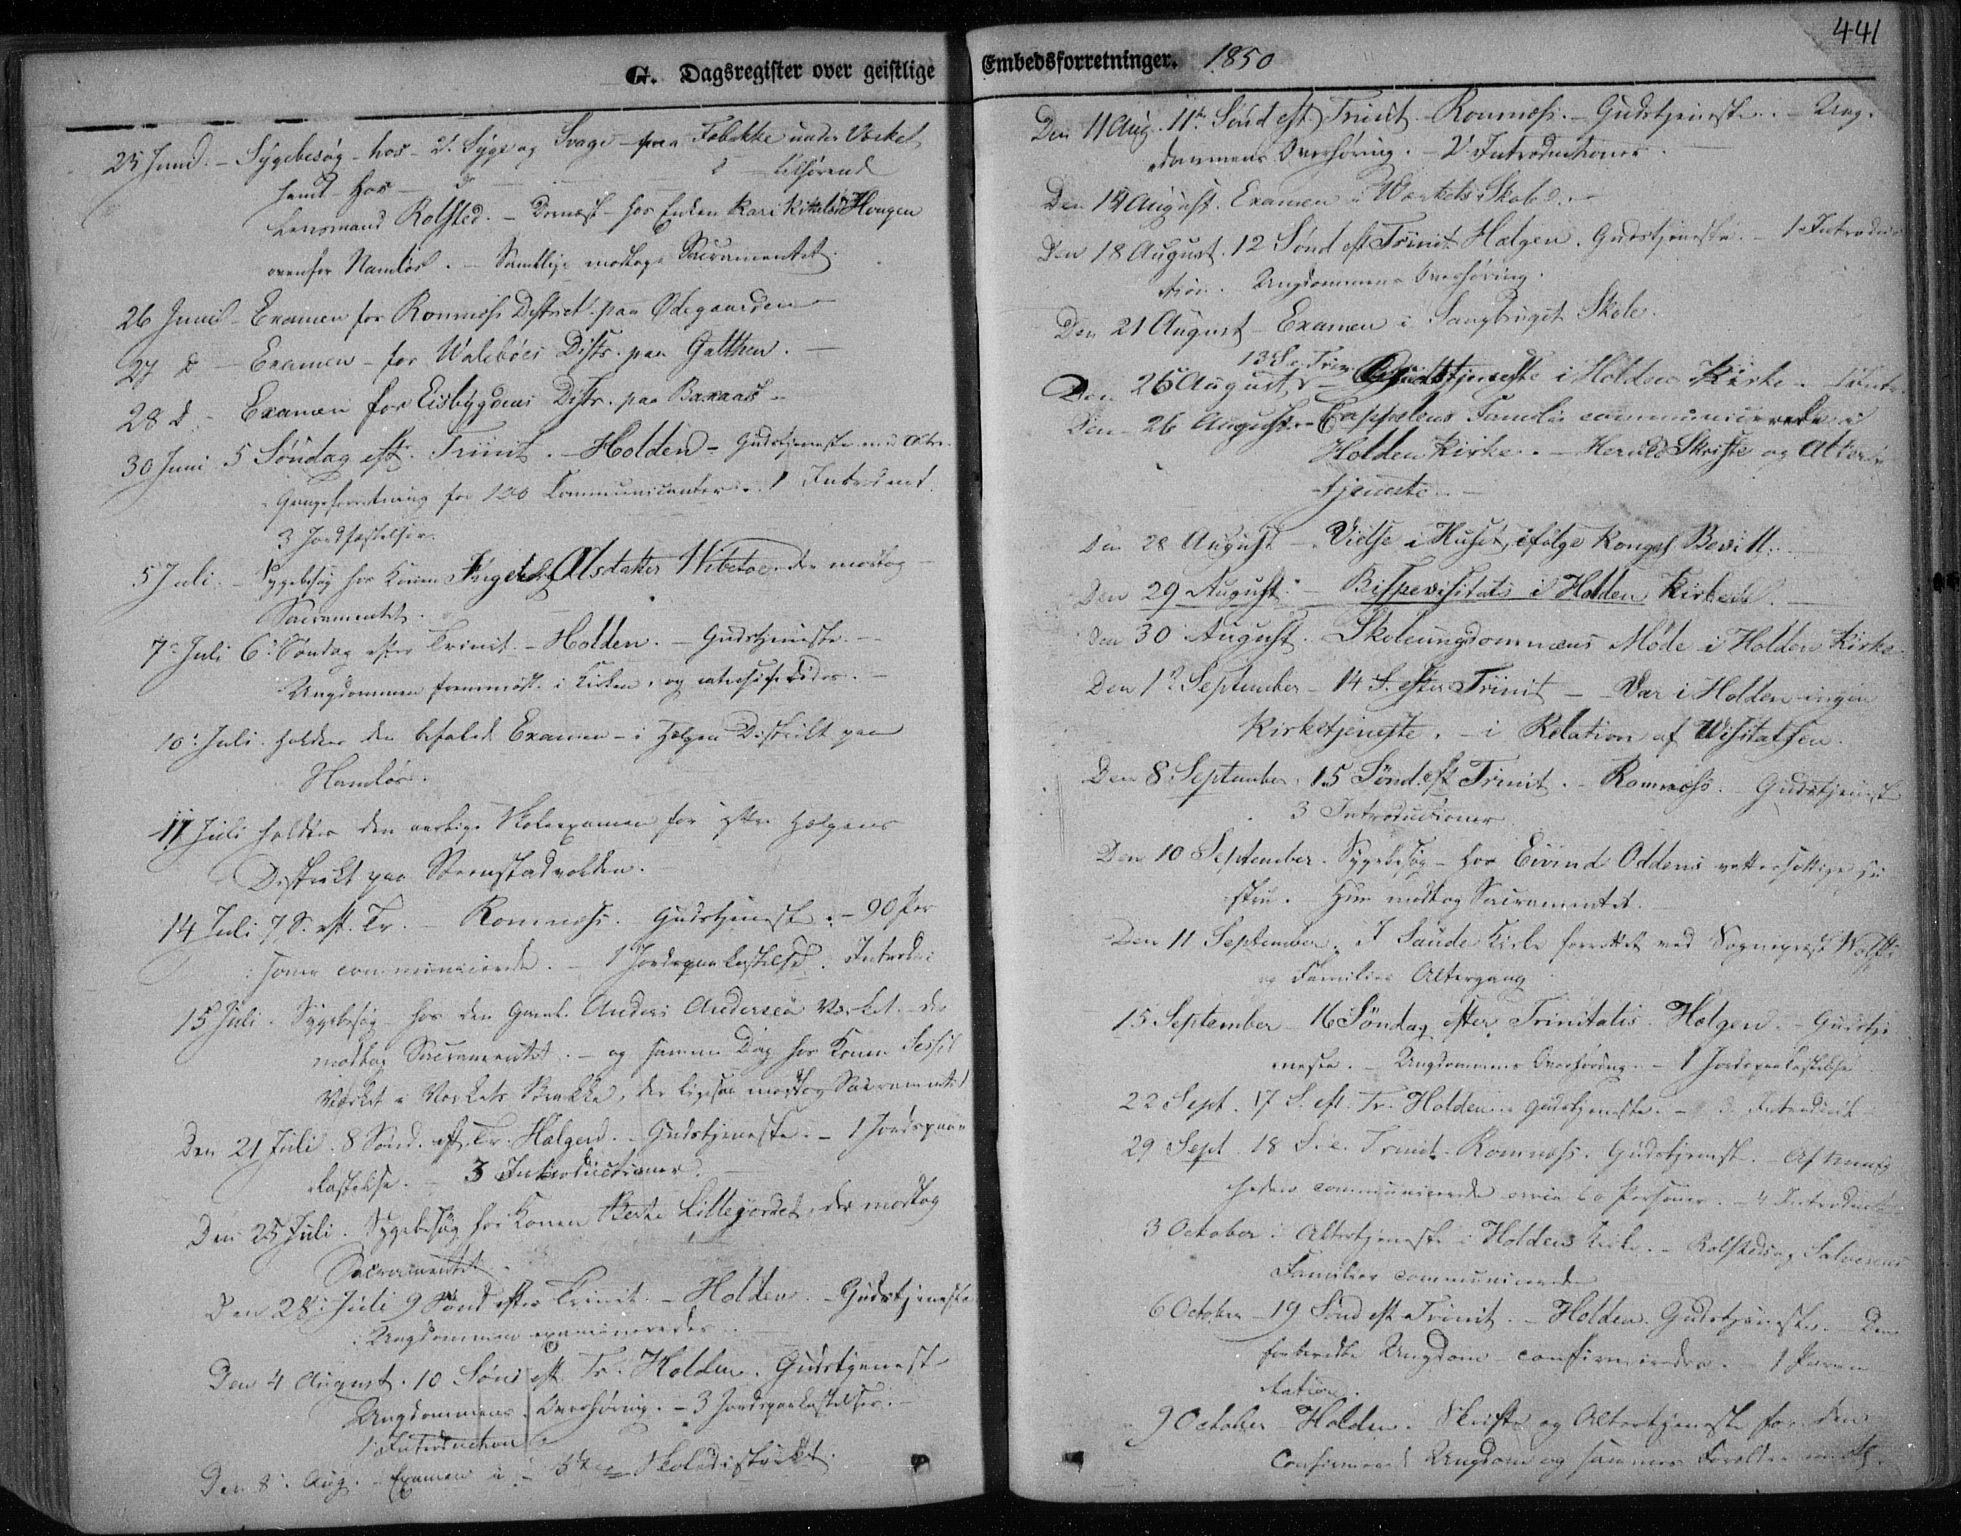 G. Dagsregister over geistlige
25 Juni. - Sygebesøg - hos - 2 Syge og Svage - paa Tobakke under Værket
samt hos - d - tilhørende
Lensmand Rolsted. - Dernæst - hos Enken Kari Haugen
ovenfor Namløs. - Samtlige modtoge Sacramentet.
26 Juni - Examen for Romnæs District paa Ødegaarden
27 d - Examen - for Walebøes Distr. paa Galthen. -
28 d - Examen for Eisbygdens Distr. paa Baraas -
30 Juni 5 Søndag eft. Trinit. - Holden - Gudstjeneste med Alter-
Gangsforretning for 100 Communicanter. 1 Introduct.
3 Jordfæstelser.
5 Juli. - Sygebesøg hos Konen Ingeborg Olsdatter Wibetoe, der modtog -
Sacramentet.
7 Juli 6 Søndag efter Trinit. - Holden. - Gudstjeneste. -
Ungdommen fremmødt i Kirken, og
10 Juli. holdtes den befalede Examen - i Helgen District paa
Namløs.
11 Juli holdtes den aarlige Skoleexamen for Helgens
Distrikt paa Steenstadvolden.
14 Juli 7 S. eft. Tr. - Romnæs. Gudstjeneste. - 90 Per-
soner communicerede. - 1 Jordspaakastelse. Introduc
15 Juli. Sygebesøg - hos den Gaml. Anders Andersen Værket. der
modtog Sacramentet. - og samme Dag hos Konen
Værket i Værkets Brakke, der ligesaa modtog Sacramentet
Den 21 Juli. 8 Sønd. eft. Tr. Helgen. - Gudstjeneste. - 1 Jordspaa-
kastelse. - 3 Introductioner. -
Den 25 Juli. Sygebesøg hos Konen Berthe Lillejordet, der modtog
Sacramentet.
Den 28 Juli 9 Sønd efter Trinit. - Holden. - Gudstjeneste
Ungdommen examineredes.
Den 4 August. 10 Sønd eft Tr. Holden. Gudstjenest
Ungdommens Overhøring. - 3 Jordspaakastelser. -
1 Introduction
Den 8 Aug. - Examen i - Skoledistrikt.
Embedsforretninger. 1850
441
Den 11 Aug. 11te Sønd eft Trinit. Romnæs. - Gudstjeneste. - Ung-
dommens Overhøring. - 2 Introductioner.
Den 14 August. Examen i Værkets Skole. -
Den 18 August. 12 Sønd eft Trinit Helgen. Gudstjeneste. - 1 Introduc-
tion. Ungdommens Overhøring.
Den 21 August - Examen i Saugbruget Skole.
13 S. e. Trin
Den 25 August - Gudstjeneste i Holden Kirke.
Den 26 August - Capellens Familie communicerede i
Holden Kirke. - Skrifte og Alter-
tjeneste. -
Den 28 August - Vielse i Huset, ifølge Kongel Bevill. -
Den 29 August. - Bispevisitats i Holden Kirke. -
Den 30 August. Skoleungdommens Møde i Holden Kirke.
Den 1 September - 14 S. efter Trinit - Var i Holden ingen
Kirketjeneste. - i Relation af Visitatsen.
Den 8 September. 15 Sønd. eft Trinit. - Romnæs. Gudstjeneste
3 Introductioner
Den 10 September. Sygebesøg - hos Eivind Oddens
Hun modtog Sacramentet.
Den 11 September. I Saude Kirke forrettet ved Sognepræst
Familiens Altergang
15 September - 16 Søndag efter Trinitatis. Helgen. - Gudstje-
neste. - Ungdommens Overhøring. - 1 Jordspaakastelse
22 Sept. 17 S. eft. Tr. Holden. - Gudstjeneste. - Introduct
29 Sept. 18 S. e. Trinit. Romnæs. Gudstjenest. - Af
heden communicerede circa 60 Personer. - 4 Introduct
3 October. Altertjeneste i Holdens Kirke. - Rolsteds og
Familier communicerede
6 October - 19 Sønd eft Trinit. - Holden. Gudstjeneste. Den
forberedte Ungdom - confirmeredes. - 1
9 October - Holden. Skrifte og Altertjeneste for den
Confirmerede Ungdom og sammes Forældre